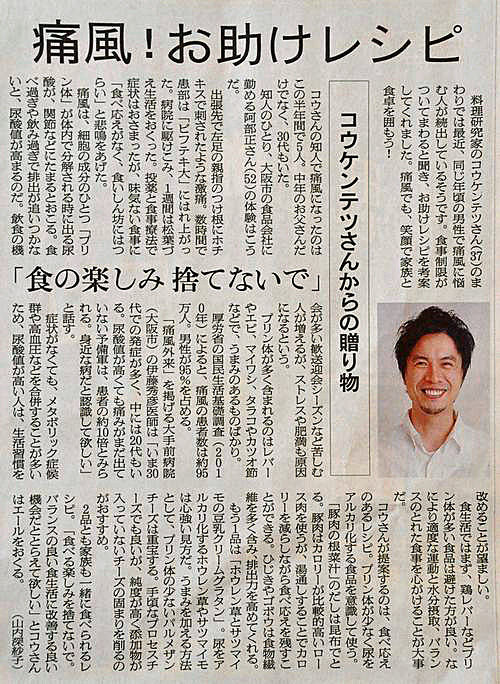 痛風！お助けレシピ
コウケンテツさんからの贈り物
「食の楽しみ 捨てないで」
料理研究家のコウケンテツさん(37)のま
わりでは最近、同じ年頃の男性で痛風に悩
む人が続出しているそうです。食事制限が
ついてまわると聞き、お助けレシピを考案
してくれました。痛風でも、笑顔で家族と
食卓を囲もう！
コウさんの知人で痛風になったのは
この半年間で5人。中年のお父さんだ
けでなく、30代もいた。
知人のひとり、大阪市の食品会社に
勤める阿部正さん(52)の体験はこう
だ。
出張先で左足の親指のつけ根にホチ
キスで刺されたような激痛。数時間で
患部は「ビフテキ大」にはれ上がっ
た。病院に駆けこみ、1週間は松葉づ
え生活をおくった。投薬と食事療法で
症状はおさまったが、味気ない食事に
「食べ応えがなく、食いしん坊にはつ
らい」と悲鳴をあげた。
痛風は、細胞の成分のひとつ「プリ
ン体」が体内で分解される時に出る尿
酸が、関節などにたまるとおこる。食
べ過ぎや飲み過ぎで排出が追いつかな
いと、尿酸値が高まるのだ。飲食の機
会が多い歓送迎会シーズンなど苦しむ
人が増えるが、ストレスや肥満も原因
になるという。
プリン体が多く含まれるのはレバー
やエビ、マイワシ、タラコやカツオ節
などで、うまみのあるものばかり。
厚労省の国民生活基礎調査（201
0年）によると、痛風の患者数は約95
万人。男性が95％を占める。
「痛風外来」を掲げる大手前病院
（大阪市）の伊藤秀彦医師は「いま30
代での発症が多く、中には20代もい
る。尿酸値が高くても痛みがまだ出て
いない予備軍は、患者の約10倍とみら
れる。身近な病だと認識して欲しい」
と話す。
症状がなくても、メタボリック症候
群や高血圧などを合併することが多い
ため、尿酸値が高い人は、生活習慣を
改めることが望ましい。
食生活ではまず、鶏レバーなどプリ
ン体が多い食品は避けた方が良い。な
により適度な運動と水分摂取、バラン
スのとれた食事を心がけることが大事
だ。
コウさんが提案するのは、食べ応え
のあるレシピ。プリン体が少なく尿を
アルカリ化する食品を意識して使う。
「豚肉の根菜汁」のだしは昆布でと
る。豚肉はカロリーが比較的高いロー
ス肉を使うが、湯通しすることでカロ
リーを減らしながら食べ応えを残すこ
とができる。ひじきやゴボウは食物繊
維を多く含み、排出力を高めてくれる。
もう1品は「ホウレン草とサツマイ
モの豆乳クリームグラタン」。尿をア
ルカリ化するホウレン草とサツマイモ
は心強い見方だ。うまみを加える方法
として、プリン体の少ないパルメザン
チーズは重宝する。手頃なプロセスチ
ーズでも良いが、純度が高く添加物が
入っていないチーズの固まりを削るの
がおすすめ。
2品とも家族も一緒に食べられるレ
シピ。「食べる楽しみを捨てないで。
バランスの良い食生活に改善する良い
機会だととらえて欲しい」とコウさん
はエールをおくる。（山内深紗子）